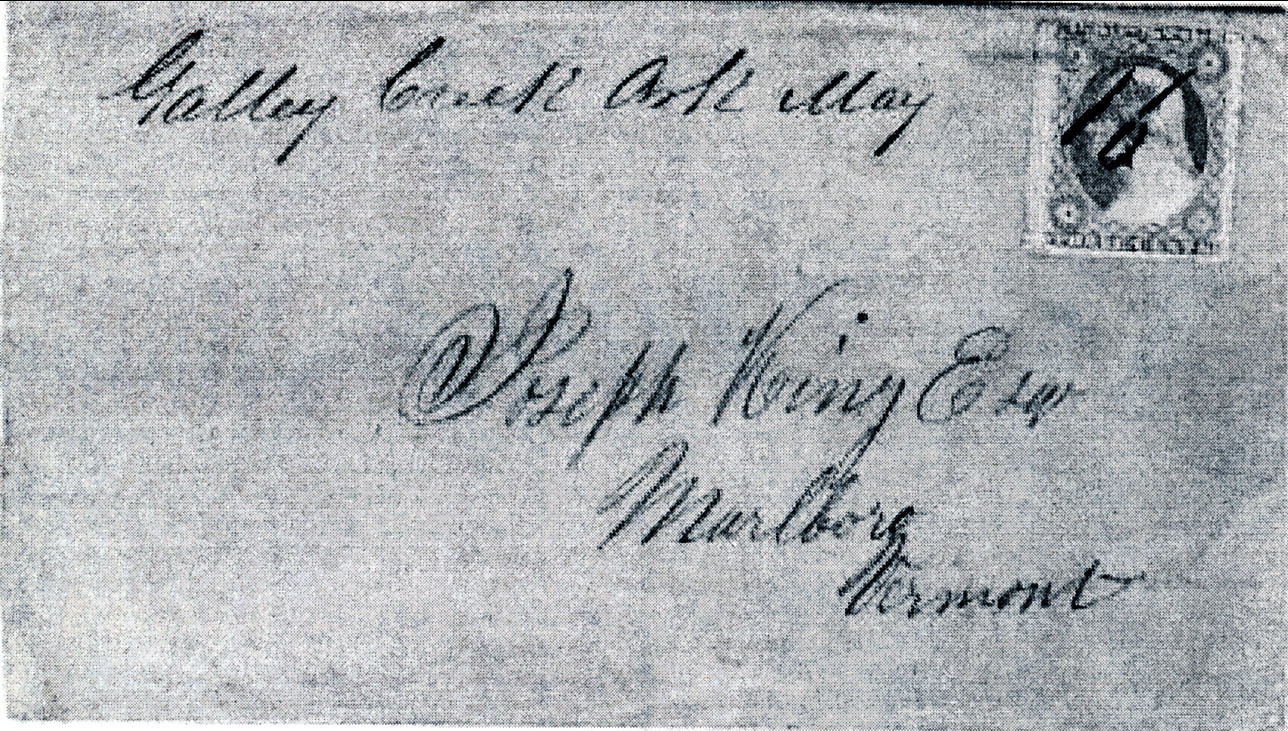 Galley Creek Ark May 16
Joseph King Esqr
Marlboro
Vermont